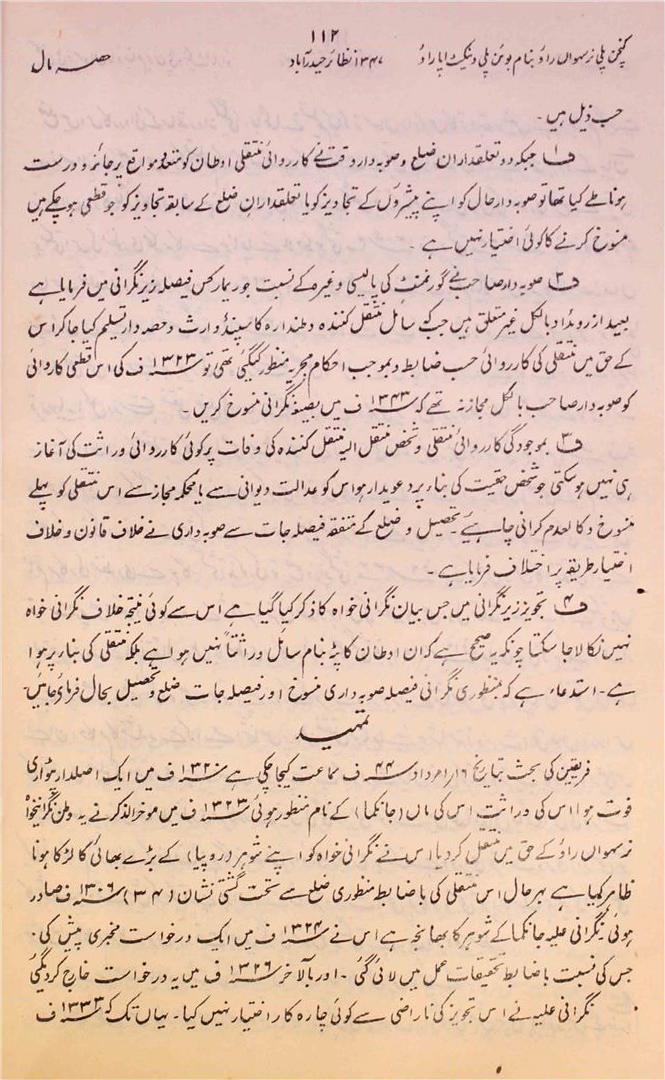 ۱۱۲
کنچن پلی نرسہواں راؤ بنام بوئن پلی ونکٹ اپاراؤ ۱۳۴۷ نظائر حیدرآباد حصہ مال
حسب ذیل ہیں۔
ف۱ جبکہ دو تعلقداران ضلع و صوبہ دار وقت نے کارروائی منتقلی اوطان کو متعدد مواقع پر جائز و درست
ہونا طے کیا تھا تو صوبہ دار حال کو اپنے پیشروں کے تجاویز کو یا تعلقداران ضلع کے سابقہ تجاویز کو جو قطعی ہوچکے ہیں
منسوخ کرنے کا کوئی اختیار نہیں ہے ۔
ف۲ صوبہ دار صاحب نے گورنمنٹ کی پالیسی وغیرہ کے نسبت جو ریمارکس فیصلہ زیر نگرانی میں فرمایا ہے
بعید از روئداد بالکل غیر متعلق ہیں جب کہ سائل منتقل کنندہ وطندارہ کا سپنڈ وارث و حصہ دار تسلیم کیا جاکر اس
کے حق میں منتقلی کی کارروائی حسب ضابطہ و بموجب احکام مجریہ منظور کیگئی تھی تو ۱۳۲۳ ف کی اس قطعی کاروائی
کو صوبہ دار صاحب بالکل مجاز نہ تھے کہ ۱۳۴۳ ف میں بصیغہ نگرانی منسوخ کریں ۔
ف۳ بموجودگی کارروائی منتقلی و شخص منتقل الیہ منتقل کنندہ کی وفات پر کوئی کارروائی وراثت کی آغاز
ہی نہیں ہوسکتی جو شخص حقیت کی بناء پر دعویدار ہو اس کو عدالت دیوانی سے یا محکمہ مجاز سے اس منتقلی کو پہلے
منسوخ و کالعدم کرانی چاہیئے ۔ تحصیل و ضلع کے متفقہ فیصلہ جات سے صوبہ داری نے خلاف قانون و خلاف
اختیار طریقہ پر اختلاف فرمایا ہے ۔
ف۴ تجویز زیر نگرانی میں جس بیان نگرانی خواہ کا ذکر کیا گیا ہے اس سے کوئی نتیجہ خلاف نگرانی خواہ
نہیں نکالا جاسکتا چونکہ یہ صحیح ہے کہ ان اوطان کا پٹہ بنام سائل وراثتاً نہیں ہوا ہے بلکہ منتقلی کی بناء پر ہوا
ہے ۔ استدعاء ہے کہ بمنظوری نگرانی فیصلہ صوبہ داری منسوخ اور فیصلہ جات ضلع و تحصیل بحال فرمائی جائیں۔
تمہید
فریقین کی بحث بتاریخ ۱۶؍ امرداد ۴۴ ف سماعت کیجاچکی ہے ۱۳۲۰ ف میں ایک اصلدار پٹواری
فوت ہوا اس کی وراثت اس کی ماں (جانکما) کے نام منظور ہوئی ۱۳۲۳ ف میں موخرالذکر نے یہ وطن نگرانیخواہ
نرسہواں راؤ کے حق میں منتقل کردیا اس نے نگرانی خواہ کو اپنے شوہر (روپیا) کے بڑے بھائی کا لڑکا ہونا
ظاہر کیا ہے بہرحال اس منتقلی کی باضابطہ منظوری ضلع سے تحت گشتی نشان (۳۴) ۱۳۰۶ ف صادر
ہوئی نگرانی علیہ جانکما کے شوہر کا بھانجہ ہے اس نے ۱۳۲۴ ف میں ایک درخواست مخبری پیش کی ۔
جس کی نسبت باضابطہ تحقیقات عمل میں لائی گئی ۔ اور بالآخر ۱۳۲۶ ف میں یہ درخواست خارج کردیگئی
نگرانی علیہ نے اس تجویز کی ناراضی سے کوئی چارہ کار اختیار نہیں کیا ۔ یہاں تک کہ ۱۳۳۳ ف